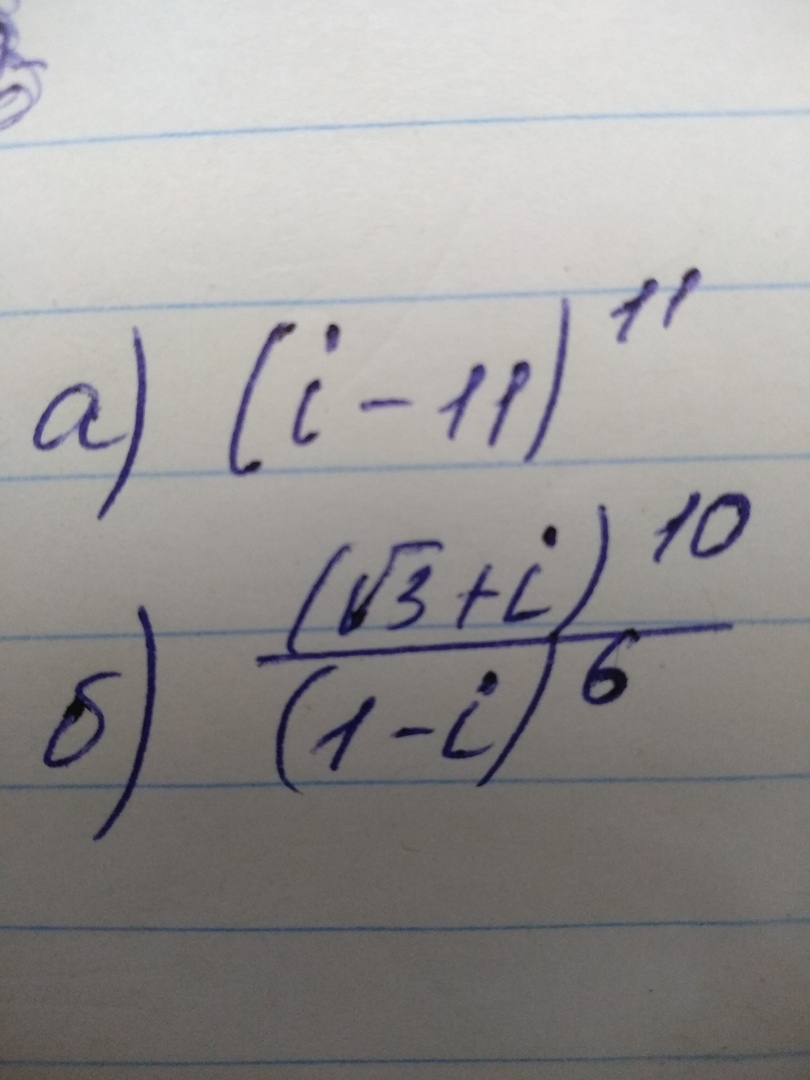 а) (i - 11)^11
б) (√3 + i)^10 / (1 - i)^6